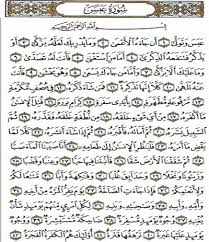 سُورَةُ عَبَسَ
بِسْمِ اللَّهِ الرَّحْمَٰنِ الرَّحِيمِ
عَبَسَ وَتَوَلَّىٰ ١ أَن جَاءَهُ الْأَعْمَىٰ ٢ وَمَا يُدْرِيكَ لَعَلَّهُ يَزَّكَّىٰ ٣ أَوْ
يَذَّكَّرُ فَتَنفَعَهُ الذِّكْرَىٰ ٤ أَمَّا مَنِ اسْتَغْنَىٰ ٥ فَأَنتَ لَهُ تَصَدَّىٰ ٦
وَمَا عَلَيْكَ أَلَّا يَزَّكَّىٰ ٧ وَأَمَّا مَن جَاءَكَ يَسْعَىٰ ٨ وَهُوَ يَخْشَىٰ ٩
فَأَنتَ عَنْهُ تَلَهَّىٰ ١٠ كَلَّا إِنَّهَا تَذْكِرَةٌ ١١ فَمَن شَاءَ ذَكَرَهُ ١٢ فِي صُحُفٍ مُّكَرَّمَةٍ ١٣
مَّرْفُوعَةٍ مُّطَهَّرَةٍ ١٤ بِأَيْدِي سَفَرَةٍ ١٥ كِرَامٍ بَرَرَةٍ ١٦ قُتِلَ الْإِنسَانُ
مَا أَكْفَرَهُ ١٧ مِنْ أَيِّ شَيْءٍ خَلَقَهُ ١٨ مِن نُّطْفَةٍ خَلَقَهُ فَقَدَّرَهُ ١٩ ثُمَّ
السَّبِيلَ يَسَّرَهُ ٢٠ ثُمَّ أَمَاتَهُ فَأَقْبَرَهُ ٢١ ثُمَّ إِذَا شَاءَ أَنشَرَهُ ٢٢ كَلَّا لَمَّا
يَقْضِ مَا أَمَرَهُ ٢٣ فَلْيَنظُرِ الْإِنسَانُ إِلَىٰ طَعَامِهِ ٢٤ أَنَّا صَبَبْنَا الْمَاءَ صَبًّا
٢٥ ثُمَّ شَقَقْنَا الْأَرْضَ شَقًّا ٢٦ فَأَنبَتْنَا فِيهَا حَبًّا ٢٧ وَعِنَبًا وَقَضْبًا ٢٨
وَزَيْتُونًا وَنَخْلًا ٢٩ وَحَدَائِقَ غُلْبًا ٣٠ وَفَاكِهَةً وَأَبًّا ٣١ مَّتَاعًا لَّكُمْ
وَلِأَنْعَامِكُمْ ٣٢ فَإِذَا جَاءَتِ الصَّاخَّةُ ٣٣ يَوْمَ يَفِرُّ الْمَرْءُ مِنْ أَخِيهِ ٣٤
وَأُمِّهِ وَأَبِيهِ ٣٥ وَصَاحِبَتِهِ وَبَنِيهِ ٣٦ لِكُلِّ امْرِئٍ مِّنْهُمْ يَوْمَئِذٍ شَأْنٌ
يُغْنِيهِ ٣٧ وُجُوهٌ يَوْمَئِذٍ مُّسْفِرَةٌ ٣٨ ضَاحِكَةٌ مُّسْتَبْشِرَةٌ ٣٩ وَوُجُوهٌ
يَوْمَئِذٍ عَلَيْهَا غَبَرَةٌ ٤٠ تَرْهَقُهَا قَتَرَةٌ ٤١ أُولَٰئِكَ هُمُ الْكَفَرَةُ الْفَجَرَةُ ٤٢